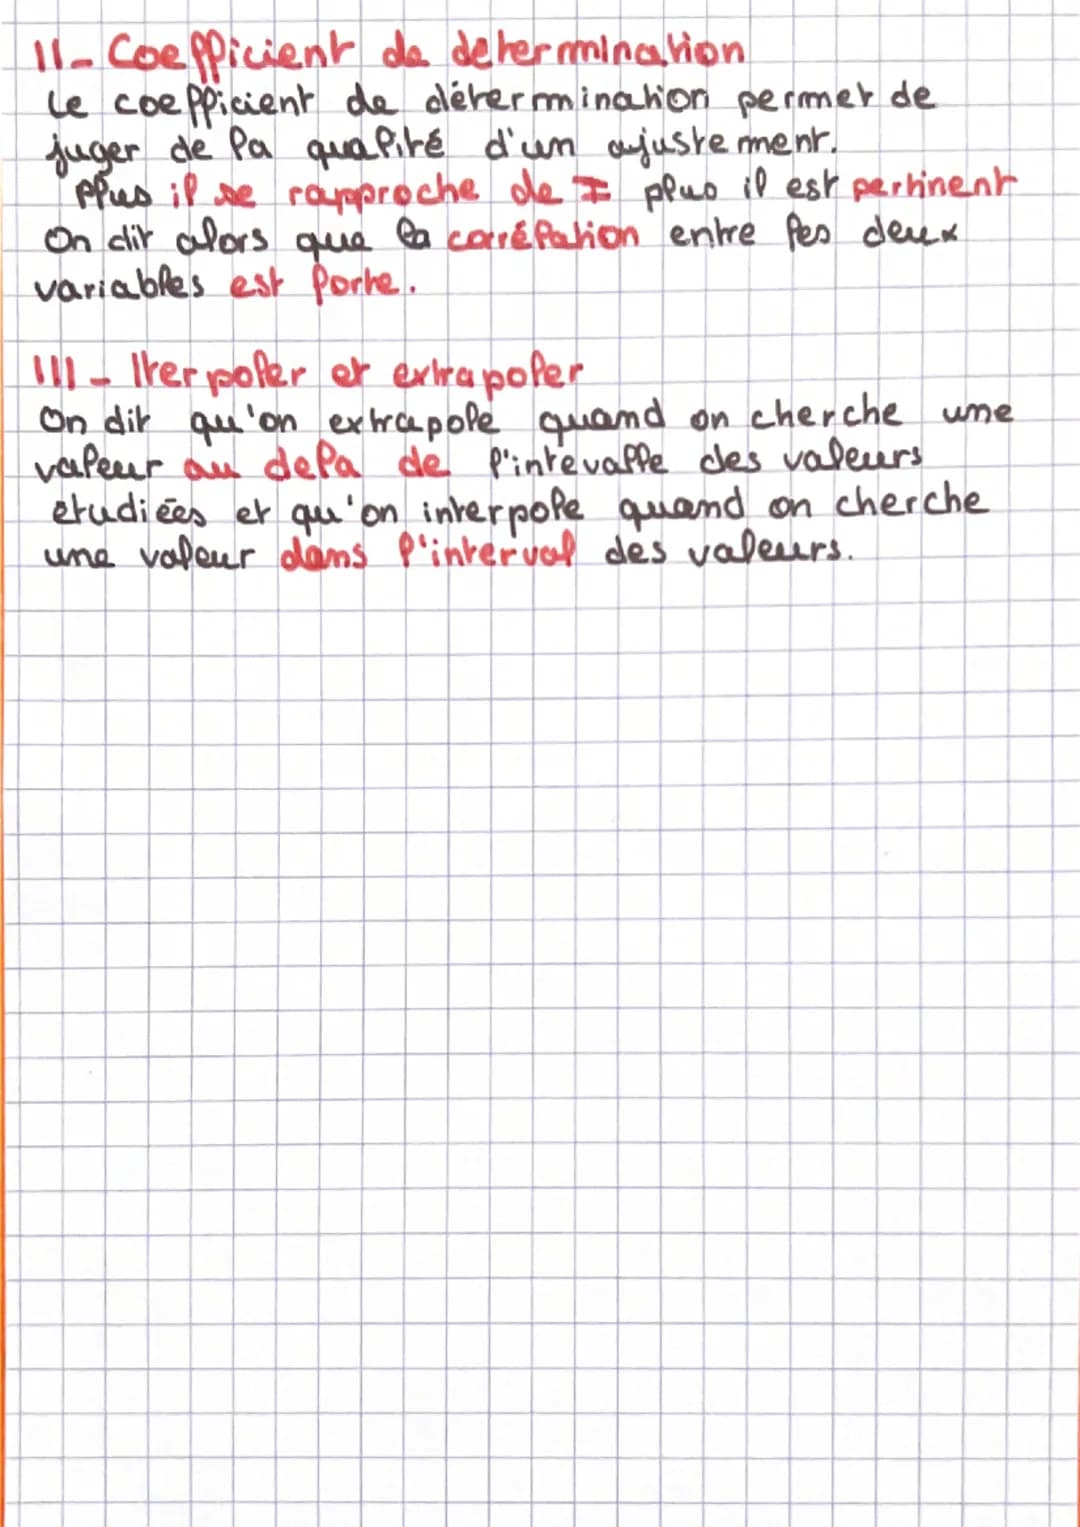 II- Coefficient de determination
Le coefficient de détermination permet de
juger de la qualité d'un ajustement.
Plus il se rapproche de 1 plus il est pertinent
On dit alors que la corrélation entre les deux
variables est forte.
III- Iterpoler et extrapoler
On dit qu'on extrapole quand on cherche une
valeur au dela de l'intevalle des valeurs
etudiées et qu'on interpole quand on cherche
une valeur dans l'interval des valeurs.